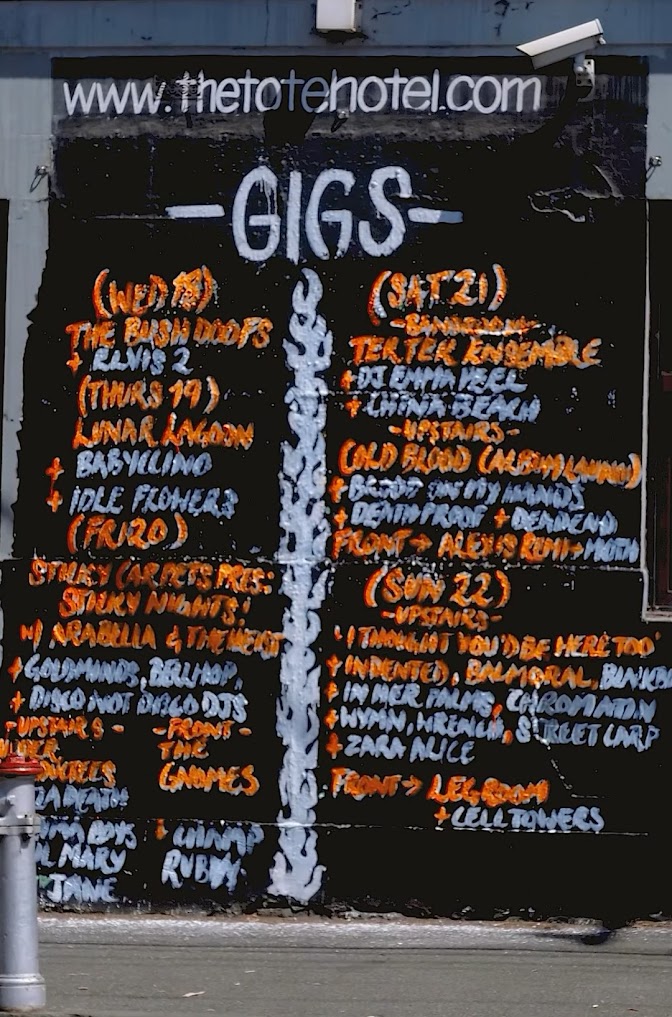 www.thetotehotel.com
-GIGS-
(WED 18)
THE BUSH DOOFS
+ ELVIS 2
(THURS 19)
LUNAR LAGOON
+ BABYCCINO
+ IDLE FLOWERS
(FRI 20)
STICKY CARPETS PRES:
STICKY NIGHTS!
W/ ARABELLA & THE HEIST
+ GOLDMINDS, BELLHOP,
+ DISCO NOT DISCO DJS
-UPSTAIRS-
-FRONT-
THE
GNOMES
+ CHIMP
RUBY
BOYS
MARY
JANE
(SAT 21)
TEK TEK ENSEMBLE
+ DJ EMMA PEEL
+ CHINA BEACH
-UPSTAIRS-
COLD BLOOD (ALBUM LAUNCH)
+ BLOOD ON MY HANDS
+ DEATHPROOF + DEADEND
FRONT → ALEXIS REMI + MOTH
(SUN 22)
-UPSTAIRS-
'I THOUGHT YOU'D BE HERE TOO'
+ INDENTED, BALMORAL,
+ IN HER PALMS, CHROMATIN
+ WYMN, WRENCH, STREET CARP
+ ZARA ALICE
FRONT → LEGROOM
+ CELL TOWERS